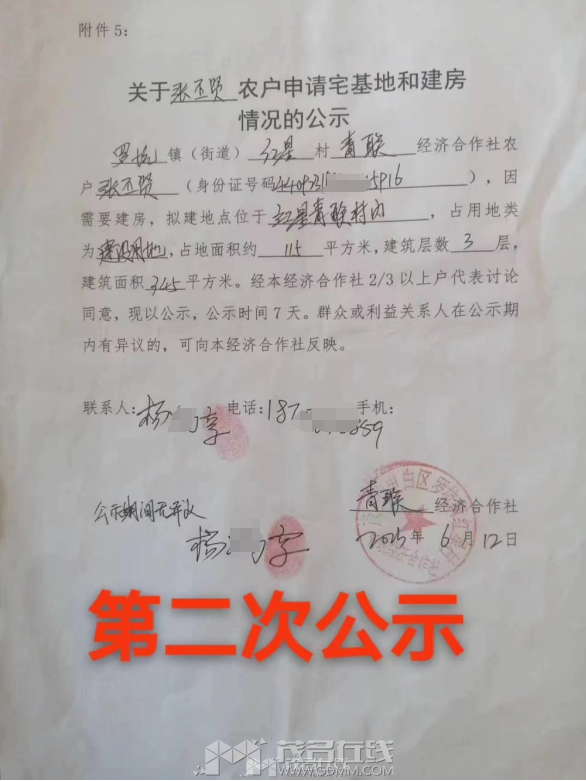 附件 5：
关于张丕贤农户申请宅基地和建房
情况的公示
罗坑镇（街道）红星村青联经济合作社农
户张丕贤（身份证号码4409231 5916），因
需要建房，拟建地点位于红星青联村内，占用地类
为建设用地，占地面积约 115 平方米，建筑层数 3 层，
建筑面积 345 平方米。经本经济合作社 2/3 以上户代表讨论
同意，现以公示，公示时间 7 天。群众或利益关系人在公示期
内有异议的，可向本经济合作社反映。
联系人：杨 电话：187 859 手机：
公示期间无异议 青联经济合作社
杨 2025年 6 月 12 日
第二次公示
茂名在线
WWW.GDMM.COM